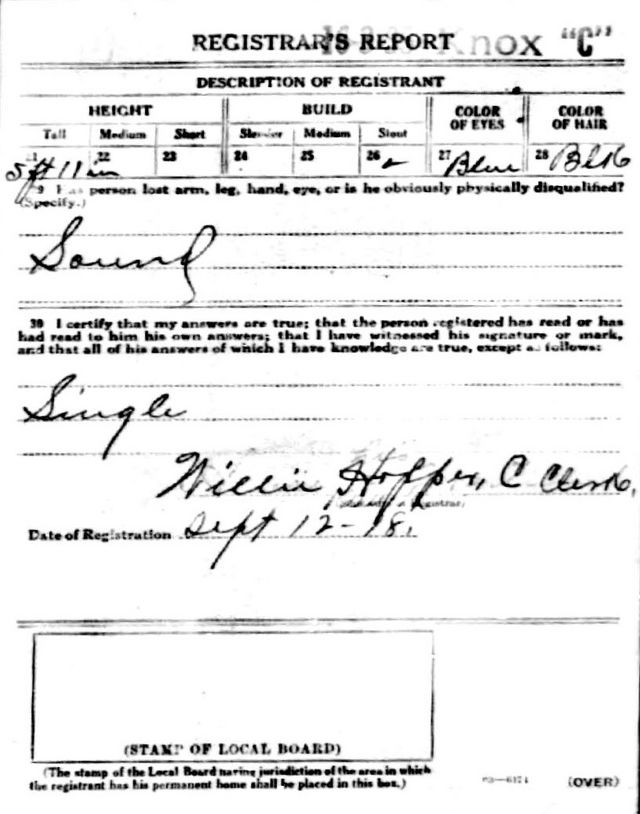 REGISTRAR'S REPORT Knox "C"
DESCRIPTION OF REGISTRANT
HEIGHT BUILD COLOR OF EYES COLOR OF HAIR
Tall Medium Short Slender Medium Stout
21 22 23 24 25 26 27 28
5 ft 11 in Blue Blk
29 Has person lost arm, leg, hand, eye, or is he obviously physically disqualified?
(Specify.)
Sound
30 I certify that my answers are true; that the person registered has read or has
had read to him his own answers; that I have witnessed his signature or mark,
and that all of his answers of which I have knowledge are true, except as follows:
Single
Willie Hopper, C Clerk,
Date of Registration Sept 12-18.
(STAMP OF LOCAL BOARD)
(The stamp of the Local Board having jurisdiction of the area in which
the registrant has his permanent home shall be placed in this box.)
(OVER)